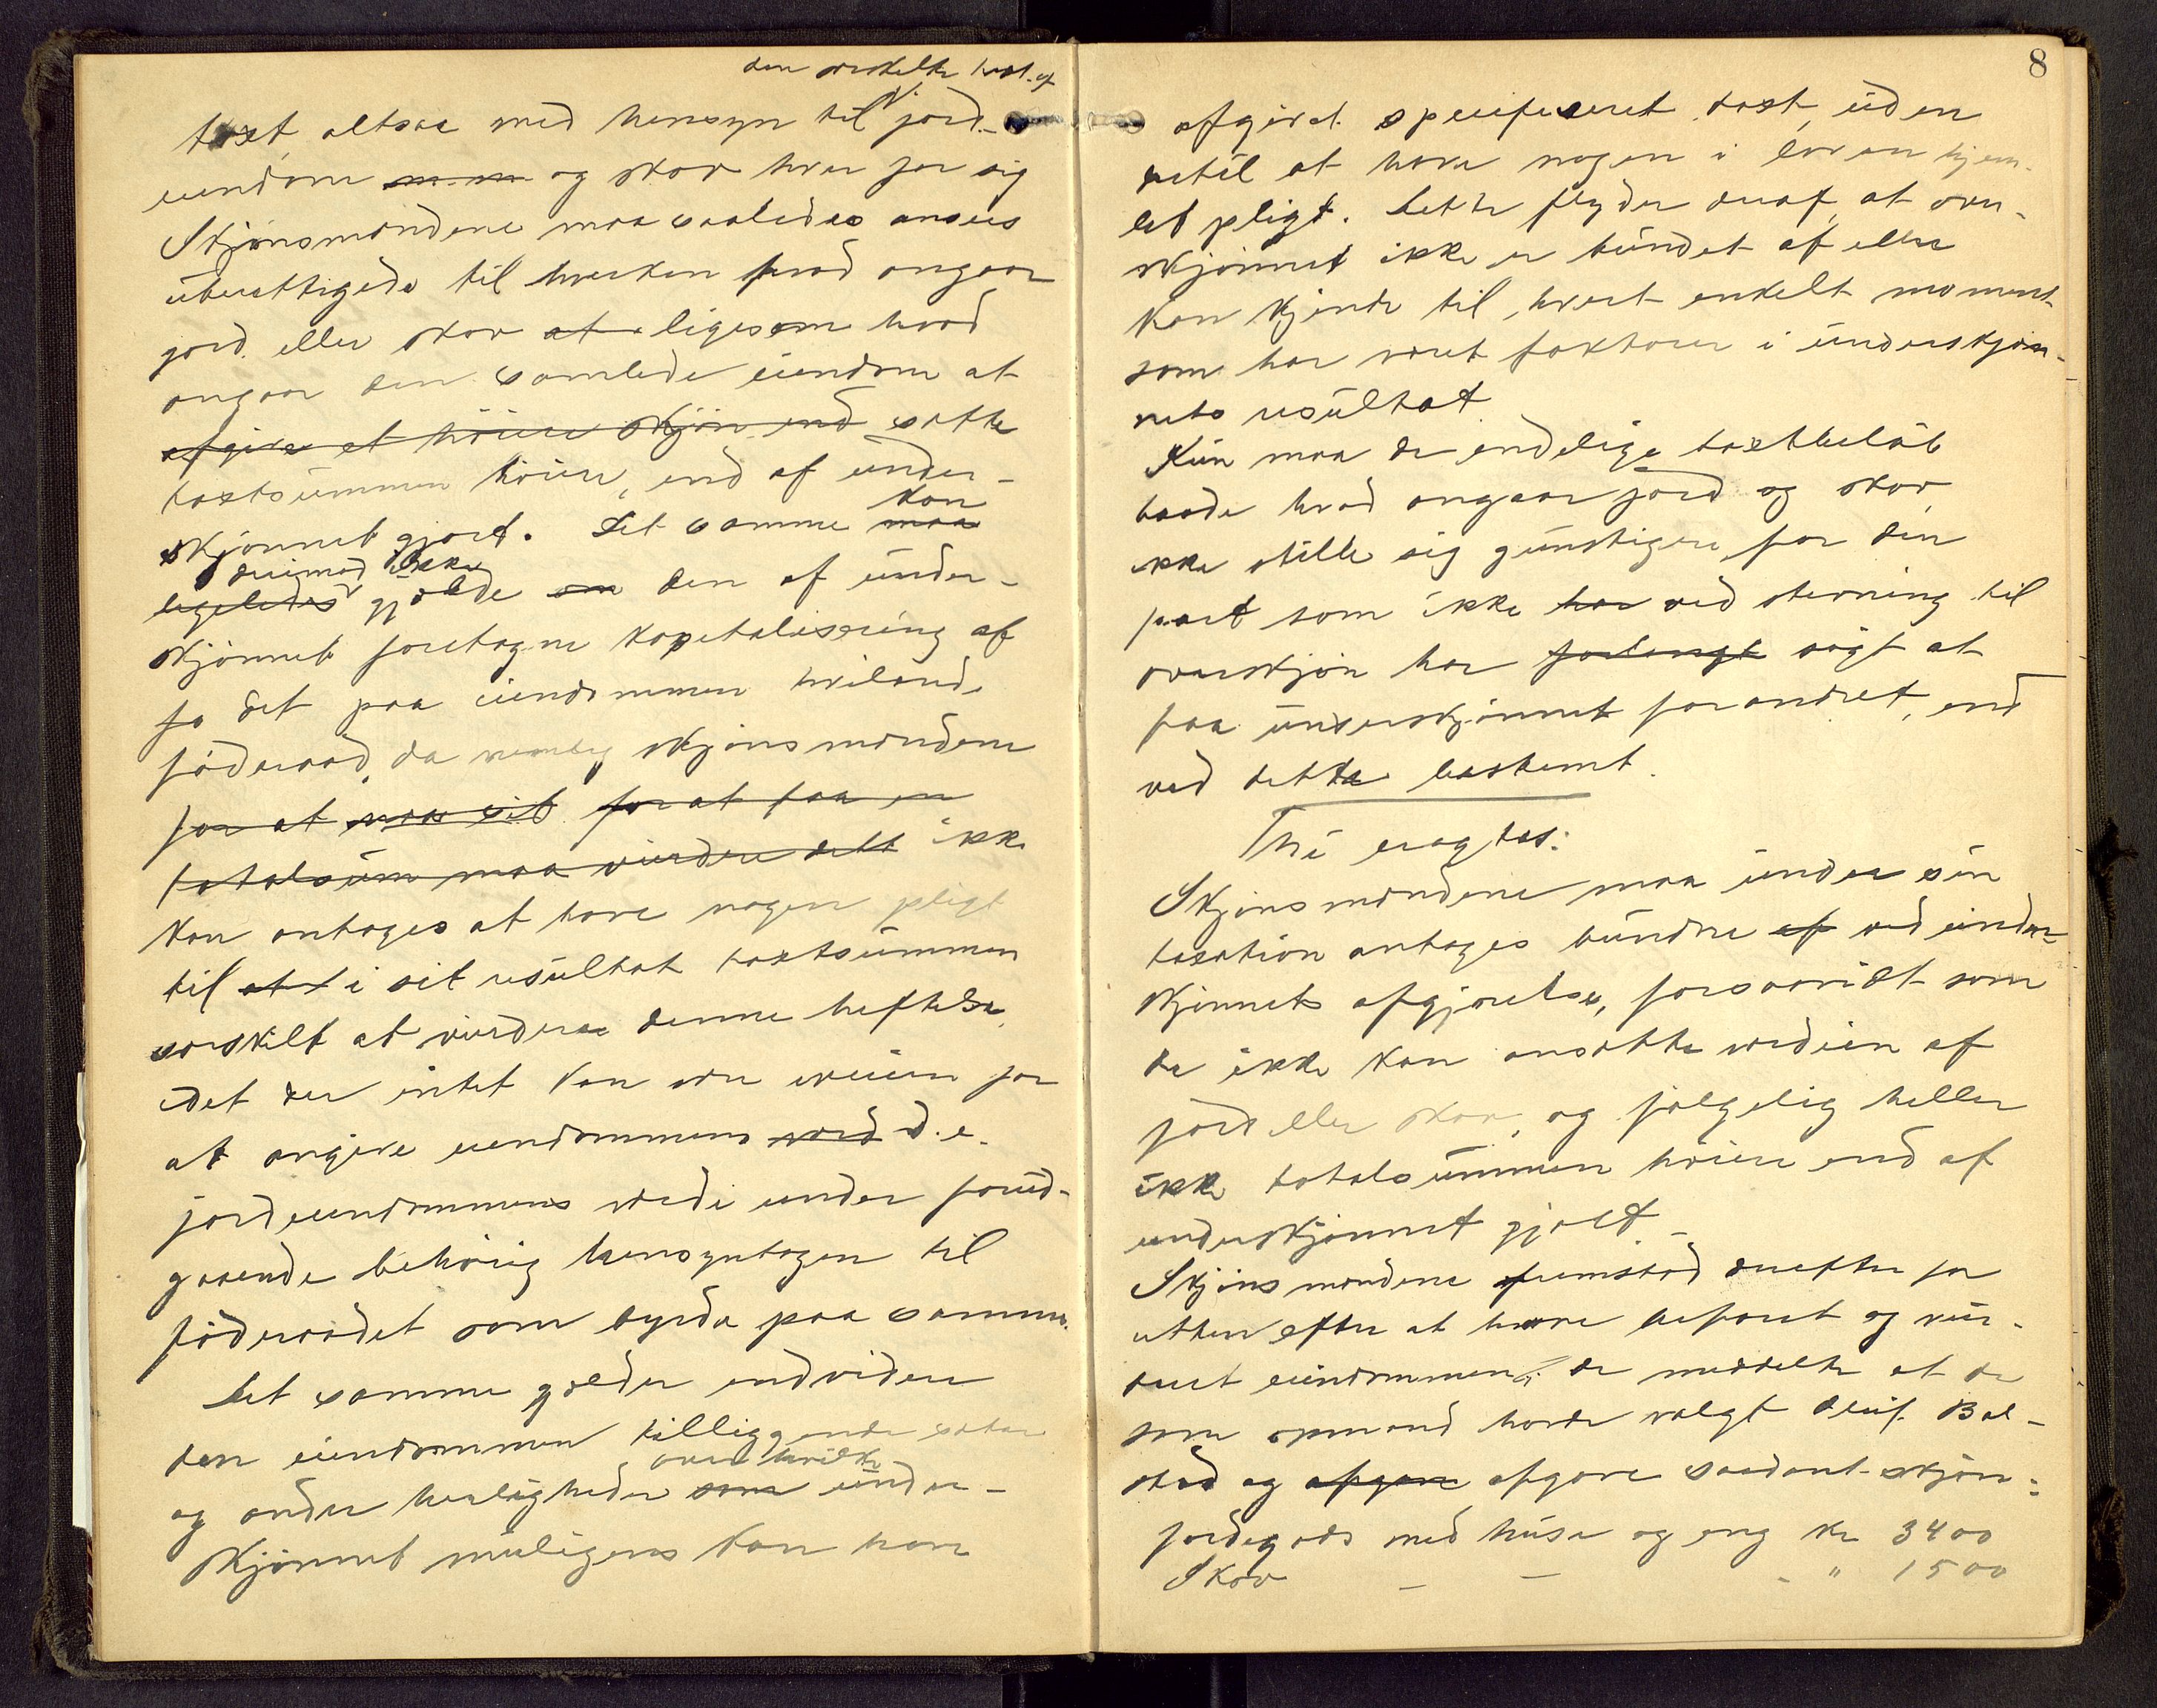 den særskilte taxt. af
taxt, altsaa med hensyn til jord-
eiendom m. m. og skov hver for sig
Skjønsmændene maa saaledes ansees
uberettigede til hverken hvad angaar
jord eller skov at ligesom hvad
angaar den samlede eiendom at
afgive et høiere skjøn end sætte
taxtsummen høiere, end af under-
kan
skjønnet gjort. Det samme maa
derimod ikke
ligeledes gjælde om den af under-
skjønnet foretagne kapitalisering af
fa det paa eiendommen hvilende
føderaad, da nemlig skjønsmændene
for at maa sit for at faa en
totalsum maa vurdere dett ikke
kan antages at have nogen pligt
til at i sit resultat taxtsummen
særskilt at vurdere denne heftelse,
idet der intet kan være iveien for
at angive eiendommens værd d. e.
jordeiendommens værdi under forud-
gaaende behørig hensyntagen til
føderaadet som byrde paa samme.
Det samme gjælder endvidere
den eiendommen tilliggende sæter
over hvilke
og andre herligheder som under-
skjønnet muligens kan have
8
afgivet specificeret taxt, uden
dertil at have nogen i loven hjem-
let pligt. Dette flyder deraf, at over-
skjønnet ikke er bundet af eller
kan kjende til, hvert enkelt moment
som har været faktorer i underskjøn-
nets resultat
Kun maa de endelige taxtbeløb
baade hvad angaar jord og skov
ikke stille sig gunstigere for den
part som ikke har ved stevning til
overskjøn har forlangt søgt at
faa underskjønnet forandret, end
ved dette bestemt.
Thi eragtes:
Skjønsmændene maa under sin
taxation antages bundne af ved under-
skjønnets afgjørelse, forsaavidt som
de ikke kan ansætte værdien af
jord eller skov, og følgelig heller
ikke totalsummen høiere end af
underskjønnet gjort.
Skjønsmændene fremstod derefter for
retten efter at have befaret og vur-
deret eiendommen; de meddelte at de
som opmand havde valgt Bal-
stad og afgave afgave saadant skjøn:
Jordegods med huse og eng kr 3400
Skov — — - " 1500